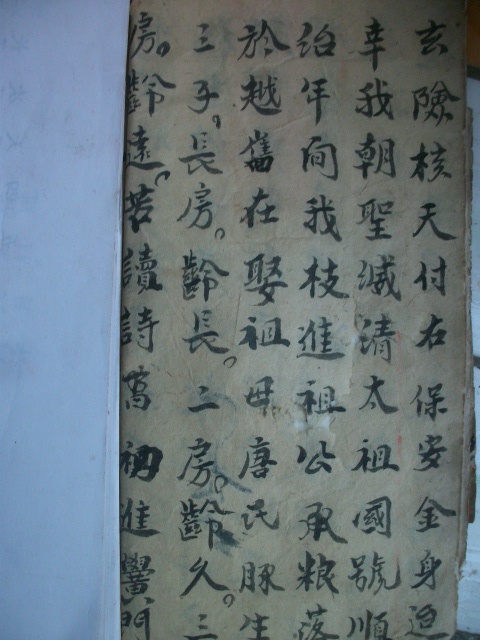 玄險核天付右保安金身迫
幸我朝聖滅清太祖國號順
治年间我枝進祖公承粮落
於越舊在娶祖母唐民脉生
三子。長房。齡長。二房。齡久。三
房。齡遠。若讀詩萬初進黌門